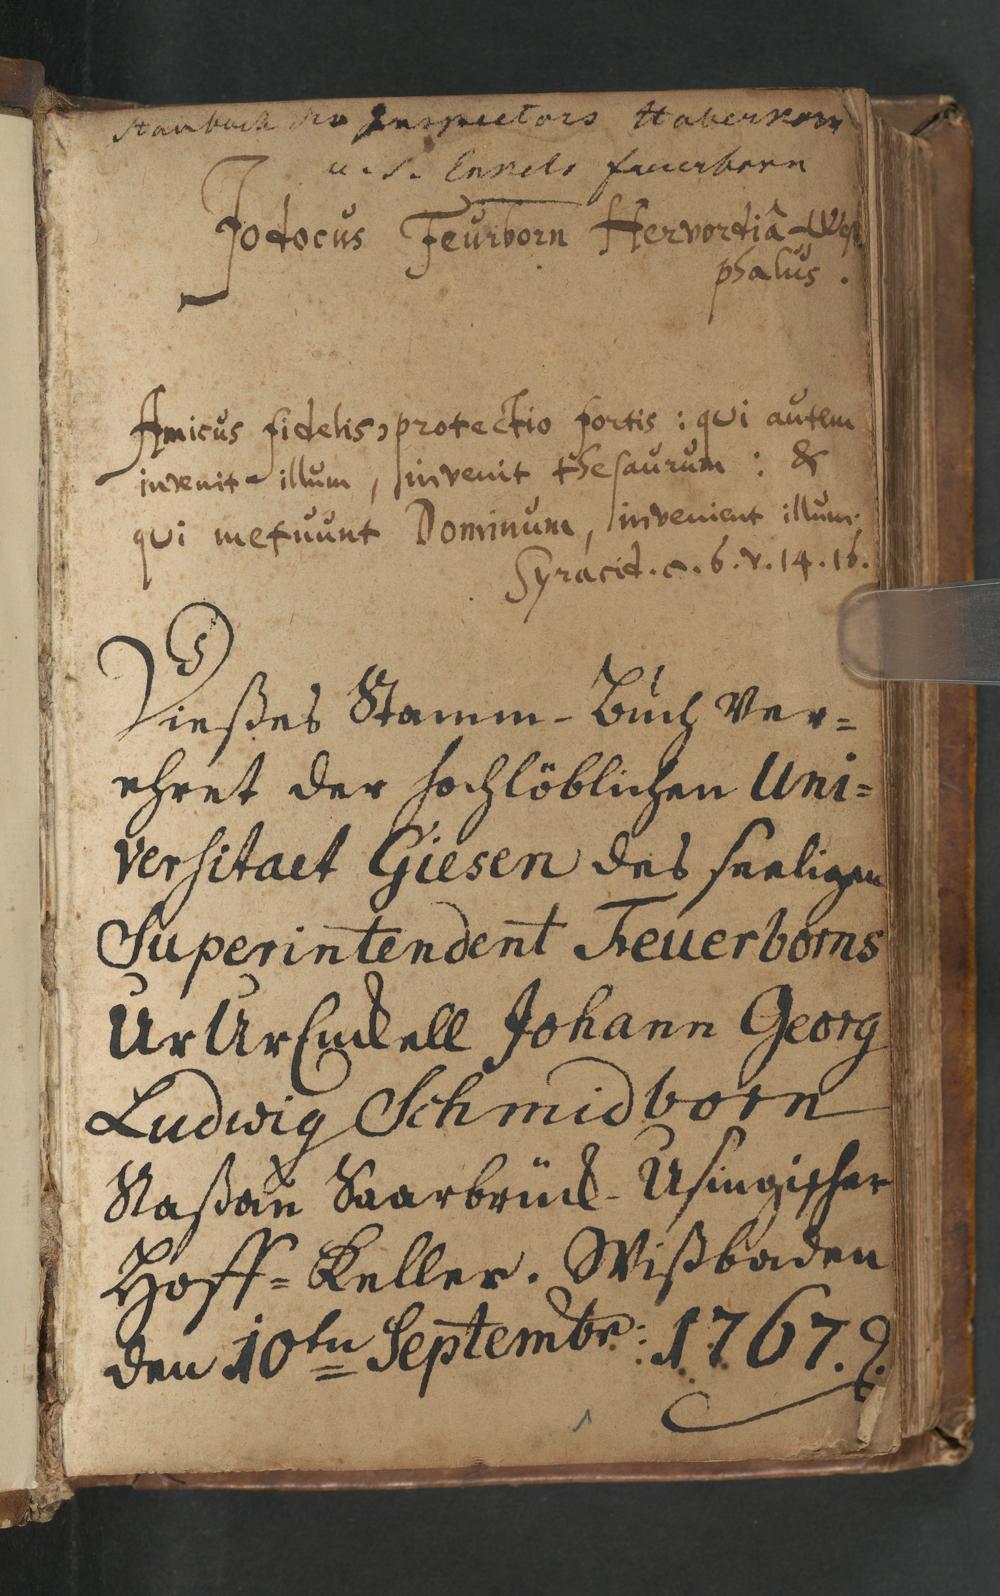 Stambuch des Inspectors Haberkorn
u. s. Enkels Feuerborn
Jodocus Feurborn Hervordiâ-West
phalus .
Amicus fidelis, protectio fortis : qui autem
invenit illum, invenit thesaurum : &
qui metuunt Dominum, invenient illum.
Syracid. c. 6. v. 14. 16.
Dießes Stamm-Buch Ver=
ehret der hochlöblichen Uni=
versitaet Giesen des seeligen
Superintendent Feuerborns
UrUrEnckell Johann Georg
Ludwig Schmidborn
Naßau Saarbrück-Usingischer
Hoff=Keller. Wißbaden
den 10tn Septembr: 1767.